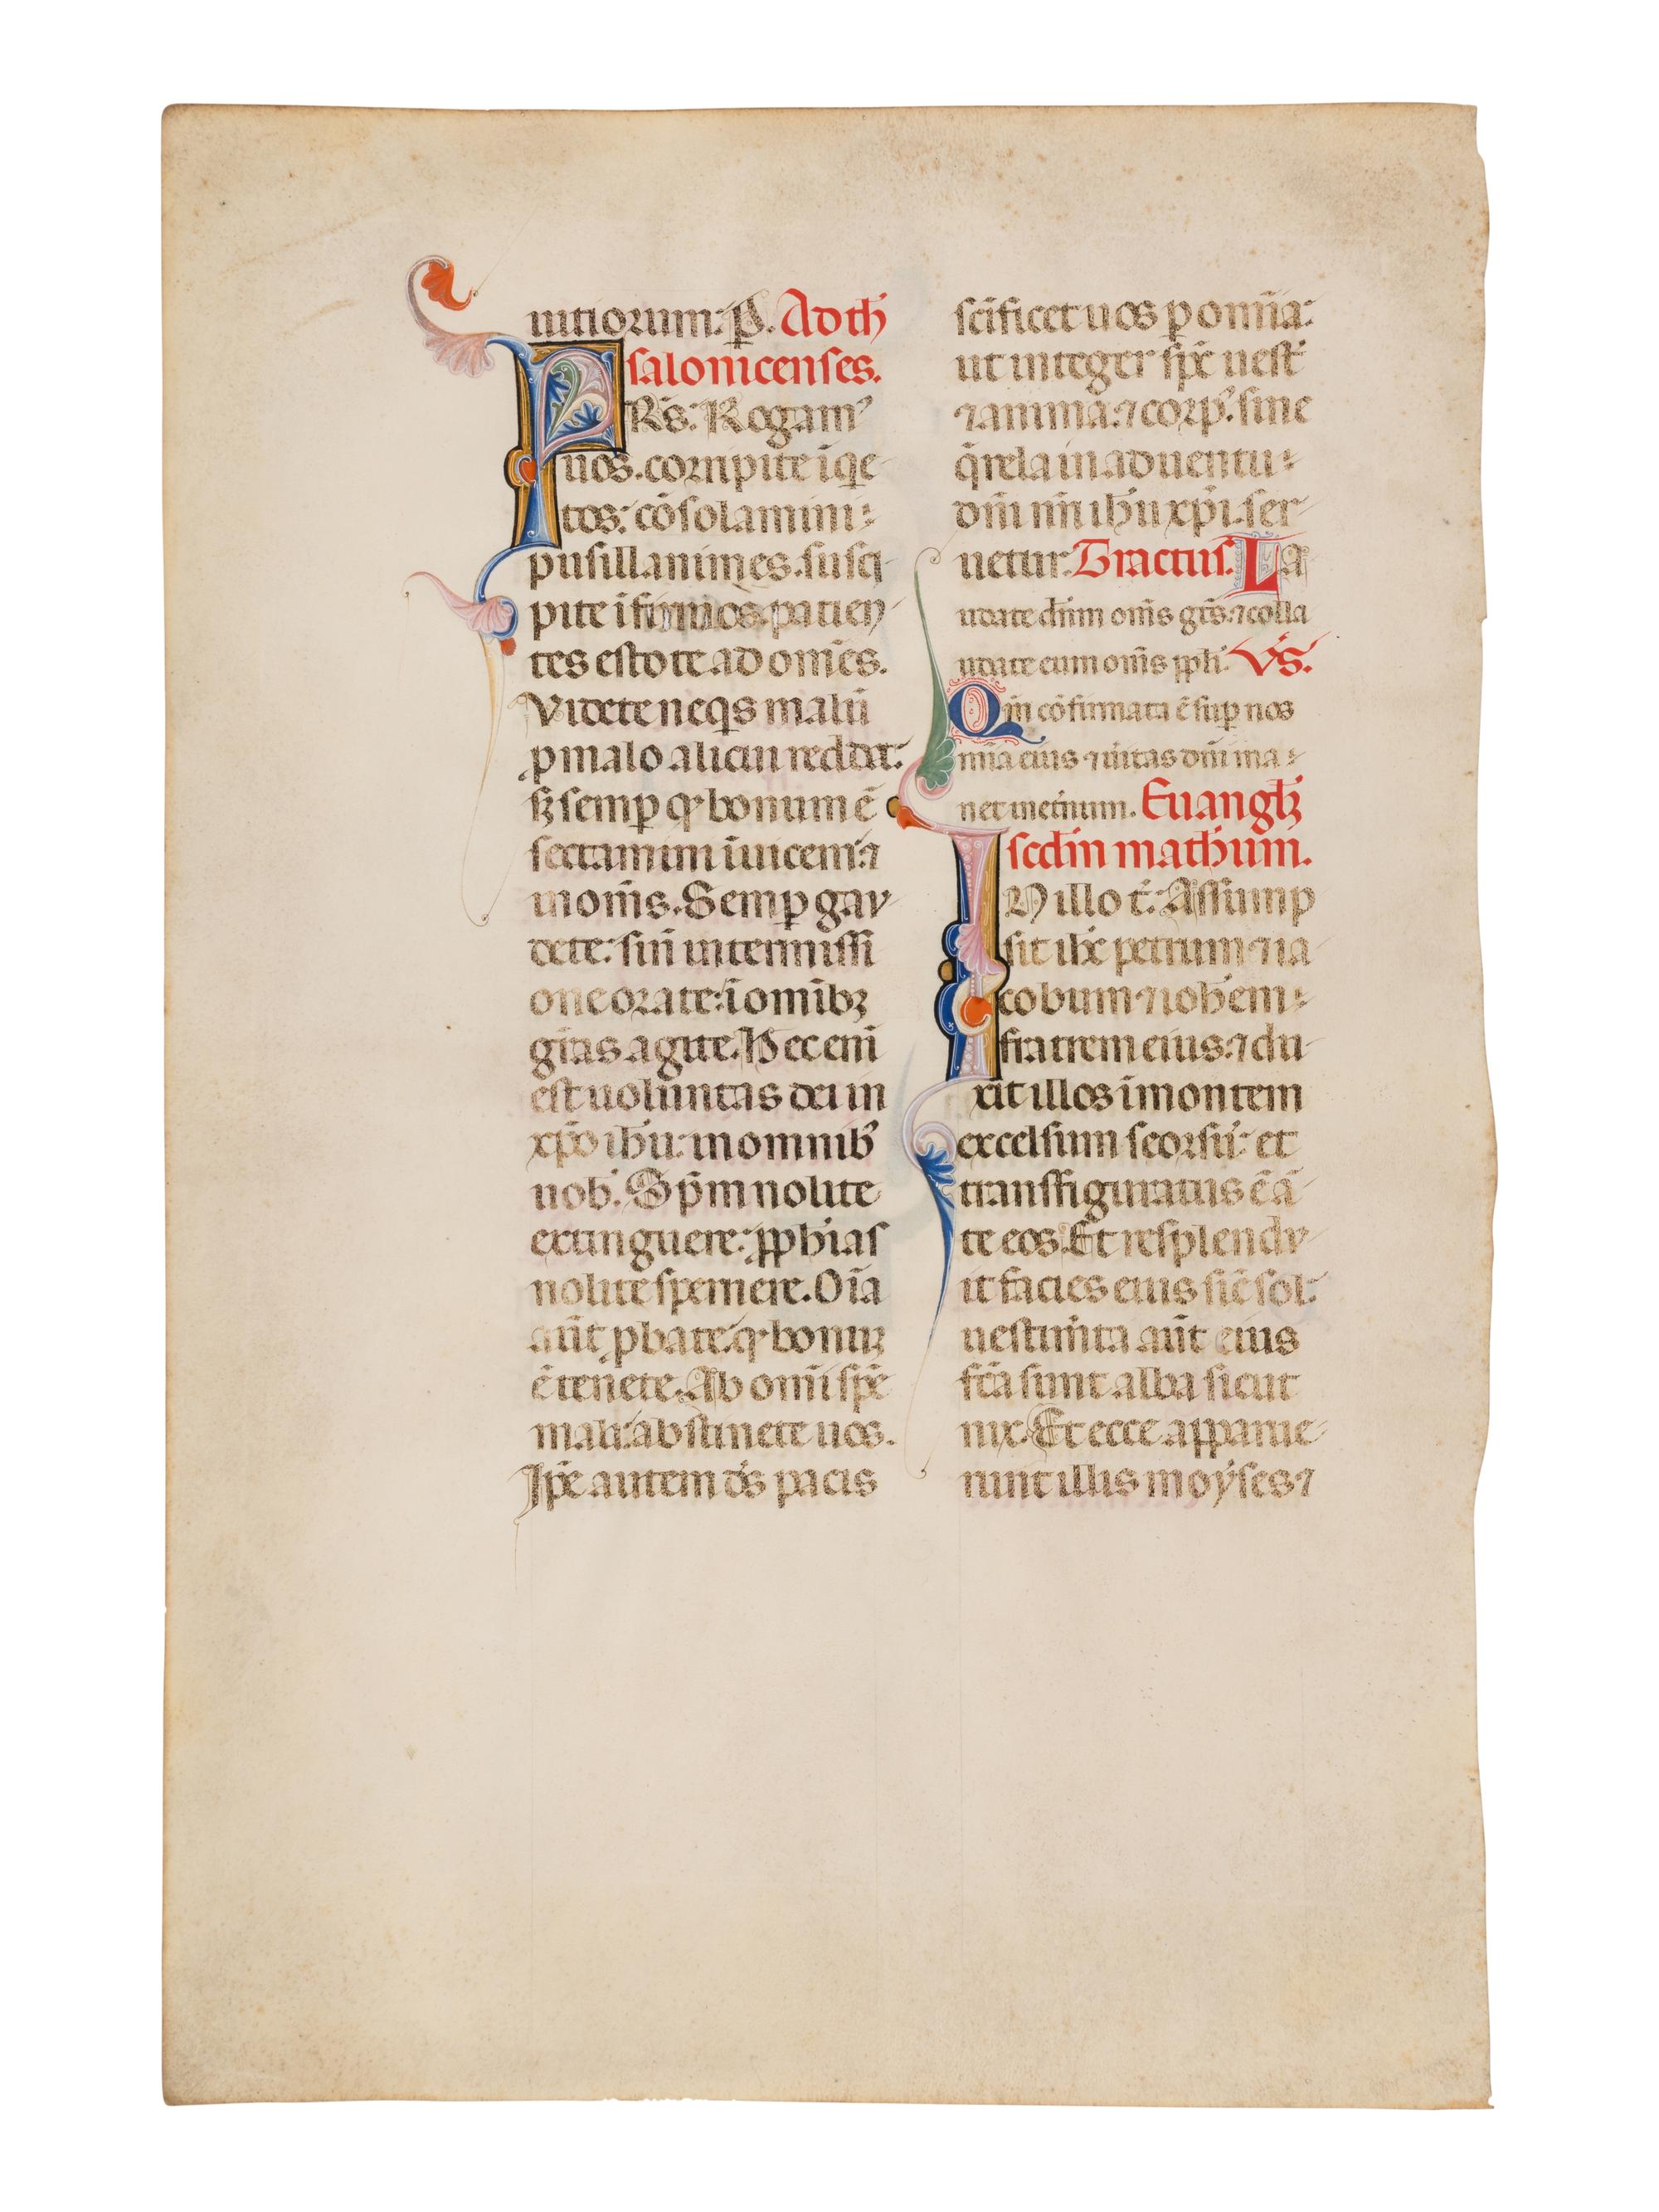 uitiorum: P. Ad th̄
salonicenses.
FRs̄: Rogam⁹
uos. corripite īq̄e
tos: cōsolamini
pusillanimes. susci
pite īfirmos. patien
tes estote ad om̄es.
Videte neq̇s malū
ꝓ malo alicui reddat:
sꝫ semꝑ qͩ bonum ē
sectamini īuicem: ⁊
ī om̄s. Semꝑ gau
dete: sin̄ intermissi
one orate: ī omībꝫ
gr̄as agite. Hec eni̅
est uoluntas dei in
xp̄o ih̄u: in omnib⁹
uob̄. Sp̄m nolite
extinguere: ꝓph̄ias
nolite spernere. Oīa
aūt ꝓbate: qͩ bonuꝫ
ē tenete. Ab om̄i sp̄e
mala: abstinete uos.
Ip̄e autem d̄s pacis
sc̄ificet uos ꝑ om̄ia:
ut integer sp̄c uest̄
⁊ anima: ⁊ corp⁹. sine
q̄rela in aduentu
dn̄i nr̄i ih̄u xp̄i. ser
uetur. Tractus. La
udate dn̄m om̄s gēs: ⁊ colla
udate eum om̄s ppl̄i. Vs̄.
Qm̄ cōfirmata ē suꝑ nos
mīa eius ⁊ ueritas dn̄i ma
net in et̄num. Euangl̄ꝫ
scd̄m math̄um.
IN illo t̄: Assump
sit ih̄c petrum ⁊ ia
cobum ⁊ ioh̄em
fratrem eius: ⁊ du
xit illos ī montem
excelsum seorsū: et
transfiguratus ē ā
te eos. Et resplendu
it facies eius sic̄ sol:
uestim̄ta aūt eius
fc̄a sunt alba sicut
nix. Et ecce apparue
runt illis moẏses ⁊